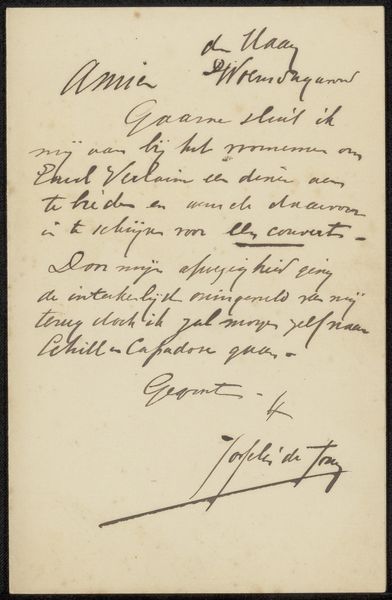 den Haag
Woensdagavond
Amice
Gaarne sluit ik
mij aan bij het voornemen om
Paul Verlaine een diner aan
te bieden en wensch daarvoor
in te schrijven voor één couvert -
Door mijn afwezigheid ging
de intekenlijst oningevuld van mij
terug doch ik zal morgen zelf naar
Schill en Capadose gaan -
Gegroet -